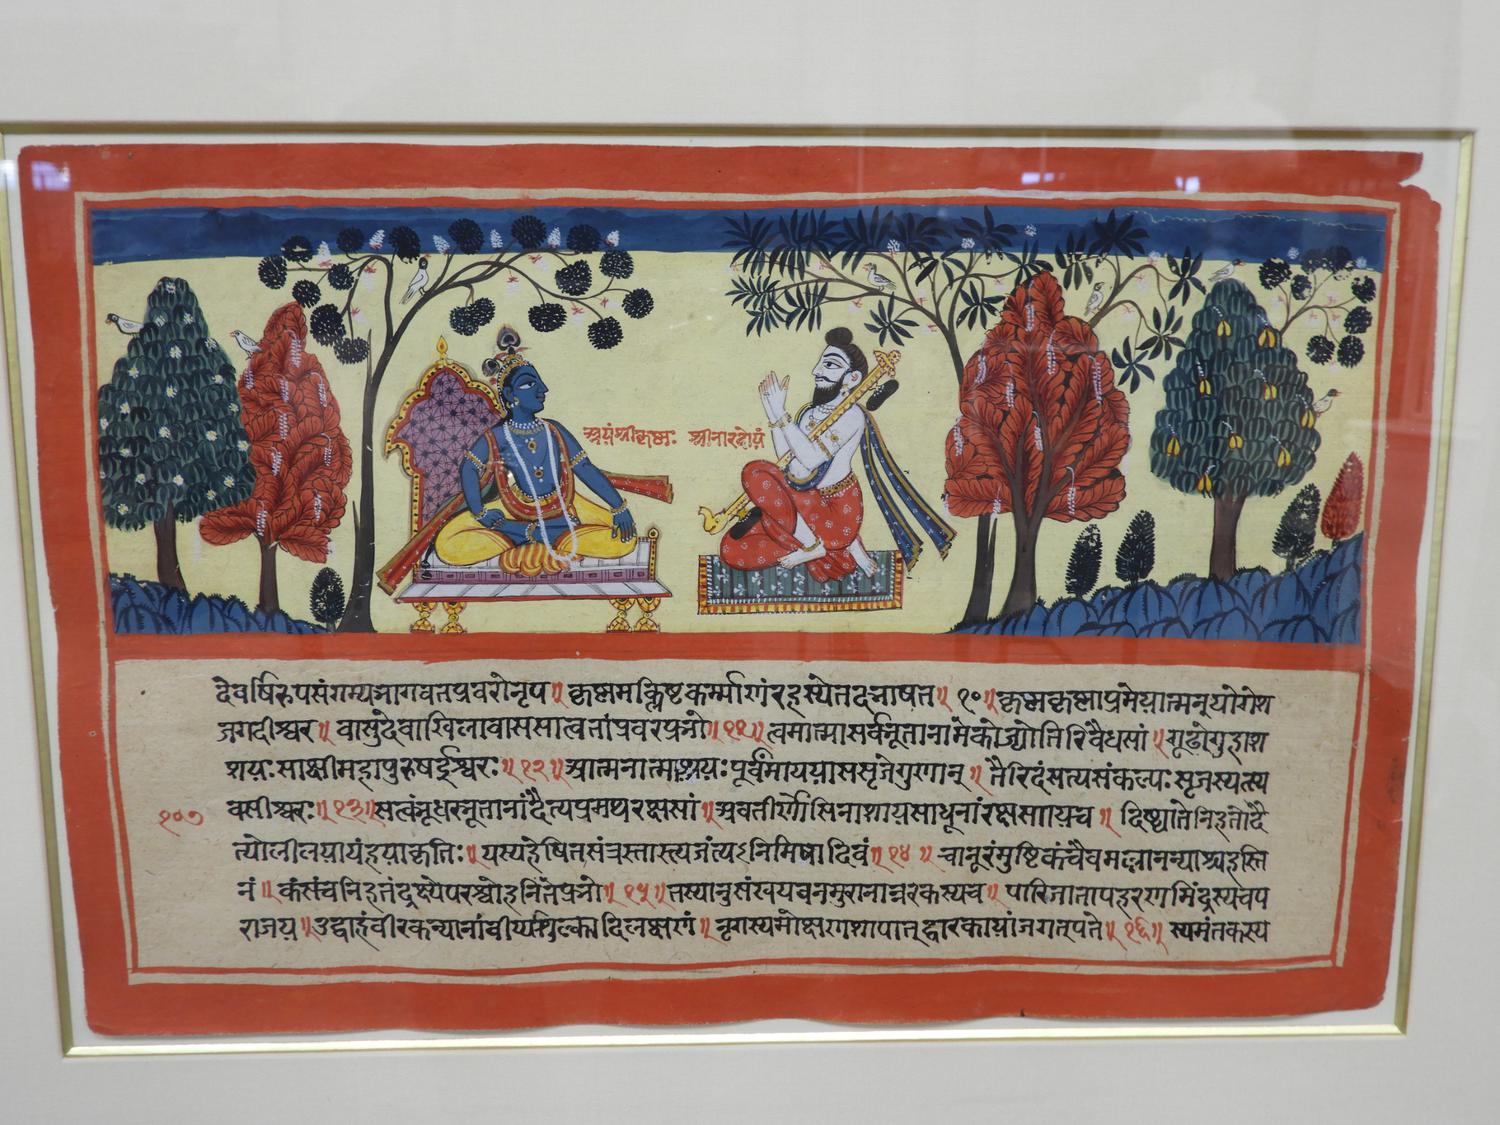 अयंश्रीकृष्णः श्रीनारदोयं
देवर्षिरुपसंगम्यभागवतप्रवरोनृप॥ कृष्णमक्लिष्टकर्म्माणंरहस्येतदभाषत॥१०॥कृष्णकृष्णाप्रमेयात्मन्‌योगेश
जगदीश्वर॥ वासुदेवाखिलावाससात्वतांप्रवरप्रभो॥११॥त्वमात्मासर्वभूतानामेकोज्योतिरिवैधसां॥गूढोगुहाश
शयःसाक्षीमहापुरुषईश्वरः॥१२॥आत्मनात्माश्रयःपूर्वंमाययाससृजेगुणान्॥तैरिदंसत्यसंकल्पःसृजस्यत्स्य
१०७
वसीश्वरः॥१३॥सत्वंभूधरभूतानांदैत्यप्रमथरक्षसां॥अवतीर्णोसिनाशायसाधूनांरक्षणायच॥ दिष्ट्यातेनिहतोदै
त्योलीलयायंहयाकृतिः॥यस्यहेषितसंत्रस्तास्त्यजंत्यऽनिमिषादिवं॥१४॥ चानूरंमुष्टिकंचैवमल्लानन्याश्चहस्ति
नं॥ कंसंचनिहतंद्रक्ष्येपरश्वोहनितेप्रभो॥१५॥तस्यानुसंखयवनमुरानान्नरकस्यच॥ पारिजातापहरणमिंद्रस्यचप
राजय॥उद्वाहंवीरकन्यानांवीर्य्यशुल्कादिलक्षणं॥ नृगस्यमोक्षणंशापात्द्वारकायांजगत्पते॥१६॥ स्यमंतकस्य